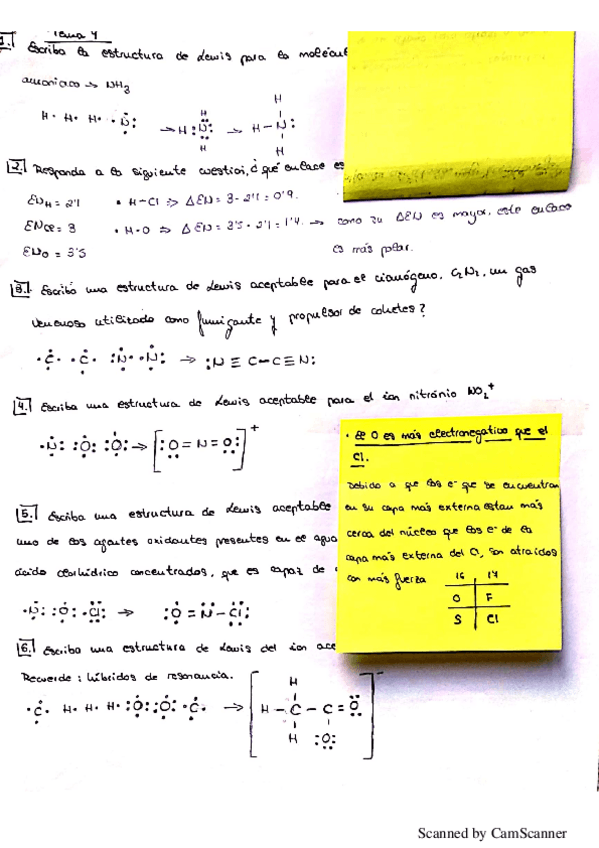 Tema 4
1. Escriba la estructura de Lewis para la molécul
amoniaco → NH3
H· H· H· ·N: → H:N: → H–N:
H H
H H
2. Responda a la siguiente cuestión, ¿qué enlace es
ENH = 2'1 • H–Cl ⇒ ΔEN = 3 - 2'1 = 0'9.
ENCl = 3 • H-O ⇒ ΔEN = 3'5 - 2'1 = 1'4. → como su ΔEN es mayor, este enlace
ENO = 3'5 es más polar.
3. Escriba una estructura de Lewis aceptable para el cianógeno, C2N2, un gas
venenoso utilizado como fumigante y propulsor de cohetes?
·C· ·C· :N· ·N: → :N≡C–C≡N:
4. Escriba una estructura de Lewis aceptable para el ion nitronio NO2+
·N: :O: :O: → [:O=N=O:]+
• El O es más electronegativo que el
Cl.
Debido a que los e- que se encuentran
en su capa más externa están más
cerca del núcleo que los e- de la
capa más externa del Cl, son atraídos
con más fuerza
16 17
O F
S Cl
5. Escriba una estructura de Lewis aceptable
uno de los agentes oxidantes presentes en el agua
ácido clorhídrico concentrados, que es capaz de
·N: :O: ·Cl: → :O=N–Cl:
6. Escriba una estructura de Lewis del ion ace
Recuerde: híbridos de resonancia.
·C· H· H· H· :O: :O: ·C· → [H–C–C=O]-
H
H :O:
Scanned by CamScanner